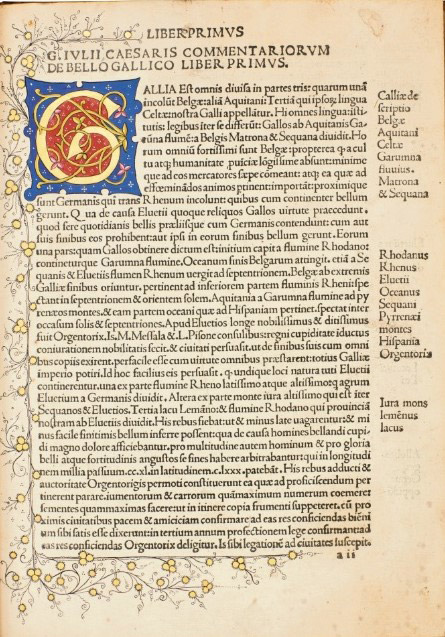 LIBER PRIMVS
G. IVLII CAESARIS COMMENTARIORVM
DE BELLO GALLICO LIBER PRIMVS.
GALLIA Est omnis diuisa in partes tris: quarum unā
incolūt Belgæ: aliā Aquitani: Tertiā qui ipsoꝝ lingua
Celtæ: nostra Galli appellātur. Hi omnes lingua: īsti
tutis: legibus īter se differūt: Gallos ab Aquitanis Ga-
rūna flumē: a Belgis Matrona & Sequana diuidit. Ho
rum omniū fortissimi sunt Belgæ: propterea q̄ a cul
tu atq; humanitate ,puīciæ lōgissime absunt: minime
que ad eos mercatores sæpe comeant: atq; ea quæ ad
effœminādos animos ptinent: important: proximique
sunt Germanis qui trans Rhenum incolunt: quibus cum continenter bellum
gerunt. Qua de causa Eluetii quoque reliquos Gallos uirtute præcedunt.
quod fere quotidianis bellis præliisque cum Germanis contendunt: cum aut
suis finibus eos prohibent: aut ipsi in eorum finibus bellum gerunt. Eorum
una pars quam Gallos obtinere dictum est: initium capit a flumine Rhodano:
contineturque Garumna flumine. Oceanum finis Belgarum attingit. etiā a Se
quanis & Eluetiis flumen Rhenum uergit ad septentrionem. Belgæ ab extremis
Galliæ finibus oriuntur. pertinent ad inferiorem partem fluminis Rheni: spe
ctant in septentrionem & orientem solem. Aquitania a Garumna flumine ad py
renæos montes. & eam partem oceani quæ ad Hispaniam pertinet. spectat inter
occasum solis & septentriones. Apud Eluetios longe nobilissimus & ditissimus
fuit Orgentorix. Is. M. Messala & . L. Pisone consulibus: regni cupiditate iductus
coniurationem nobilitatis fecit. & ciuitati persuasit. ut de finibus suis cum omni
bus copiis exirent. perfacile esse cum uirtute omnibus præstarent: totius Galliæ
imperio potiri. Id hoc facilius eis persuasit. q̄ undique loci natura tuti Eluetii
continerentur. una ex parte flumine Rheno latissimo atque altissimo: q̄ agrum
Eluetium a Germanis diuidit. Altera ex parte monte iura altissimo qui est īter
Sequanos & Eluetios. Tertia lacu Lemāno: & flumine Rhodano qui prouinciā
nostram ab Eluetiis diuidit. His rebus fiebat: ut & minus late uagarentur: & mi
nus facile finitimis bellum inferre possent: qua de causa homines bellandi cupi-
di magno dolore afficiebantur. pro multitudine autem hominum & pro gloria
belli atque fortitudinis angustos se fines habere arbitrabantur: qui in longitudi
nem millia passuum. cc. xl. in latitudinem. c. lxxx. patebāt. His rebus adducti &
auctoritate Orgentorigis permoti constituerunt ea quæ ad proficiscendum per
tinerent parare. iumentorum & carrorum quāmaximum numerum coemere:
sementes quammaximas facere: ut in itinere copia frumenti suppeteret. cū pro
ximis ciuitatibus pacem & amiciciam confirmare ad eas res conficiendas biēni
um sibi satis esse dixerunt: in tertium annum profectionem lege confirmant: ad
eas res conficiendas Orgentorix deligitur. Is sibi legationē ad ciuitates suscepit.
a ii
Galliæ de
scriptio
Belgæ
Aquitani
Celtæ
Garumna
fluuius.
Matrona
& Sequana
Rhodanus
Rhenus
Eluetii
Oceanus
Sequani
Pyrrenæi
montes
Hispania
Orgentorix
Iura mons
lemēnus
lacus